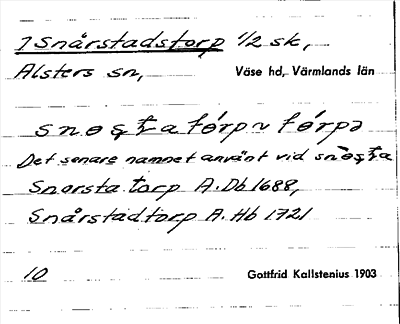 1 Snårstadstorp 1/2 sk,
Alsters sn, Väse hd, Värmlands län
snɷsƫa tórp ~ tórpə
Det senare namnet använt vid snɷsƫa
Snorsta torp A. Db 1688,
Snårstad torp A. Hb 1721
10 Gottfrid Kallstenius 1903